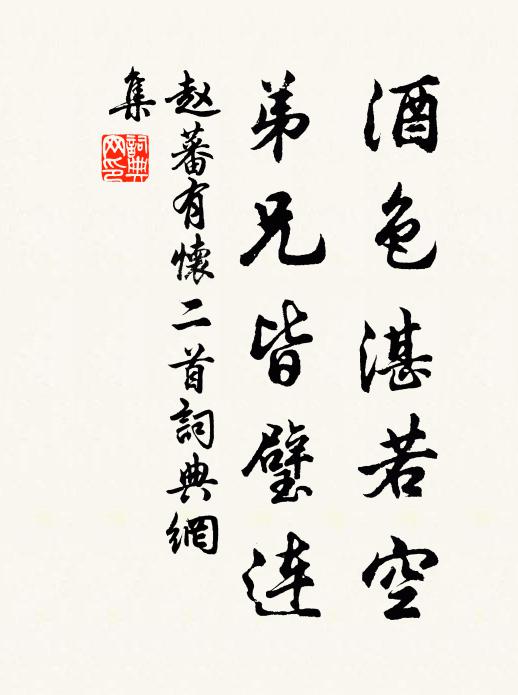 酒色湛若空
弟兄皆璧連
赵蕃有懷二首詞典網
集
詞典
网印